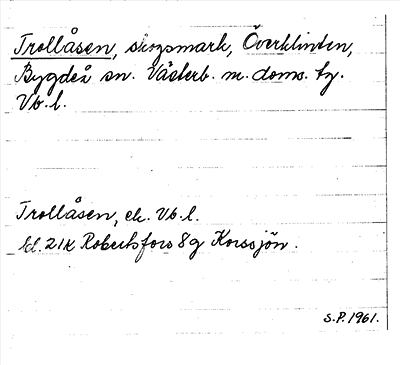 Trollåsen, skogsmark, Överklinten,
Bygdeå sn. Västerb. m. doms. tg.
Vb. l.
Trollåsen, ek. Vb. l.
bl. 21K Robertsfors 8g Korssjön.
S.P. 1961.